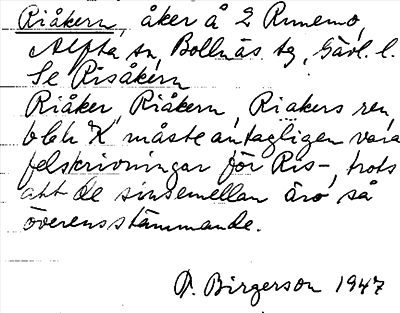 Riåkern, åker å 2 Runemo,
Alfta sn, Bollnäs tg, Gävl. l.
Se Risåkern
Riåker, Riåkern, Riakers ren,
måste antagligen vara
felskrivningar för Ris-, trots
att de sinsemellan äro så
överensstämmande.
D. Birgerson 1947